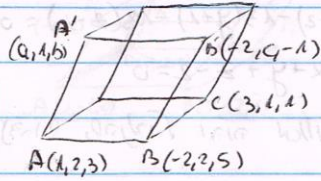 A'
(a,1,b)
B'(-2,c,-1)
C(3,1,1)
A(1,2,3)
B(-2,2,5)